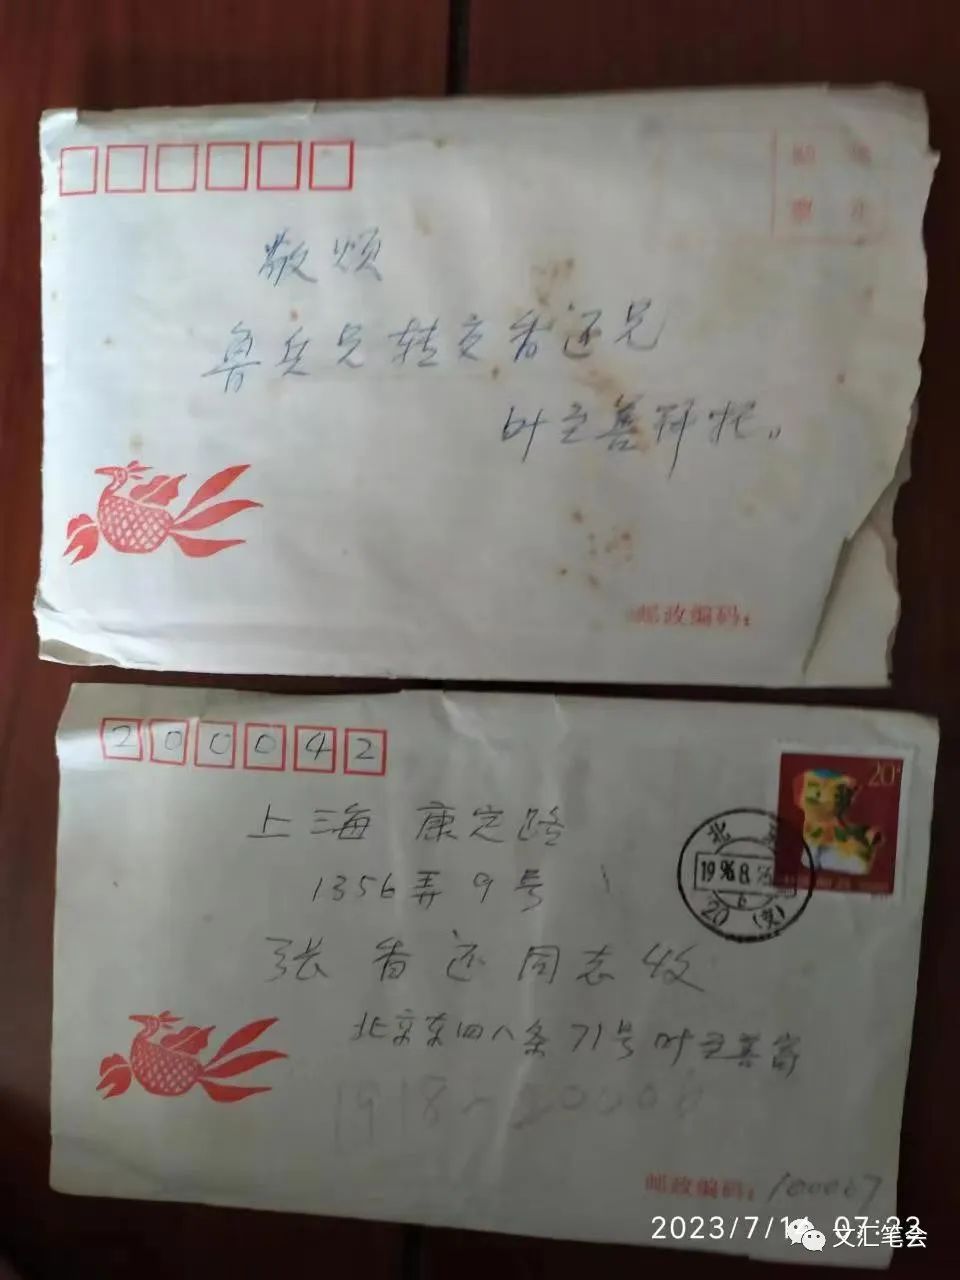 敬烦
鲁兵兄转交香还兄
叶至善拜托。
邮政编码：
200042
20
上海 康定路
1356弄9号
北
1996.8.
6
20 (支)
张香还同志收
北京东四八条71号叶至善寄
邮政编码：100007
2023/7/14 07:23
文汇笔会